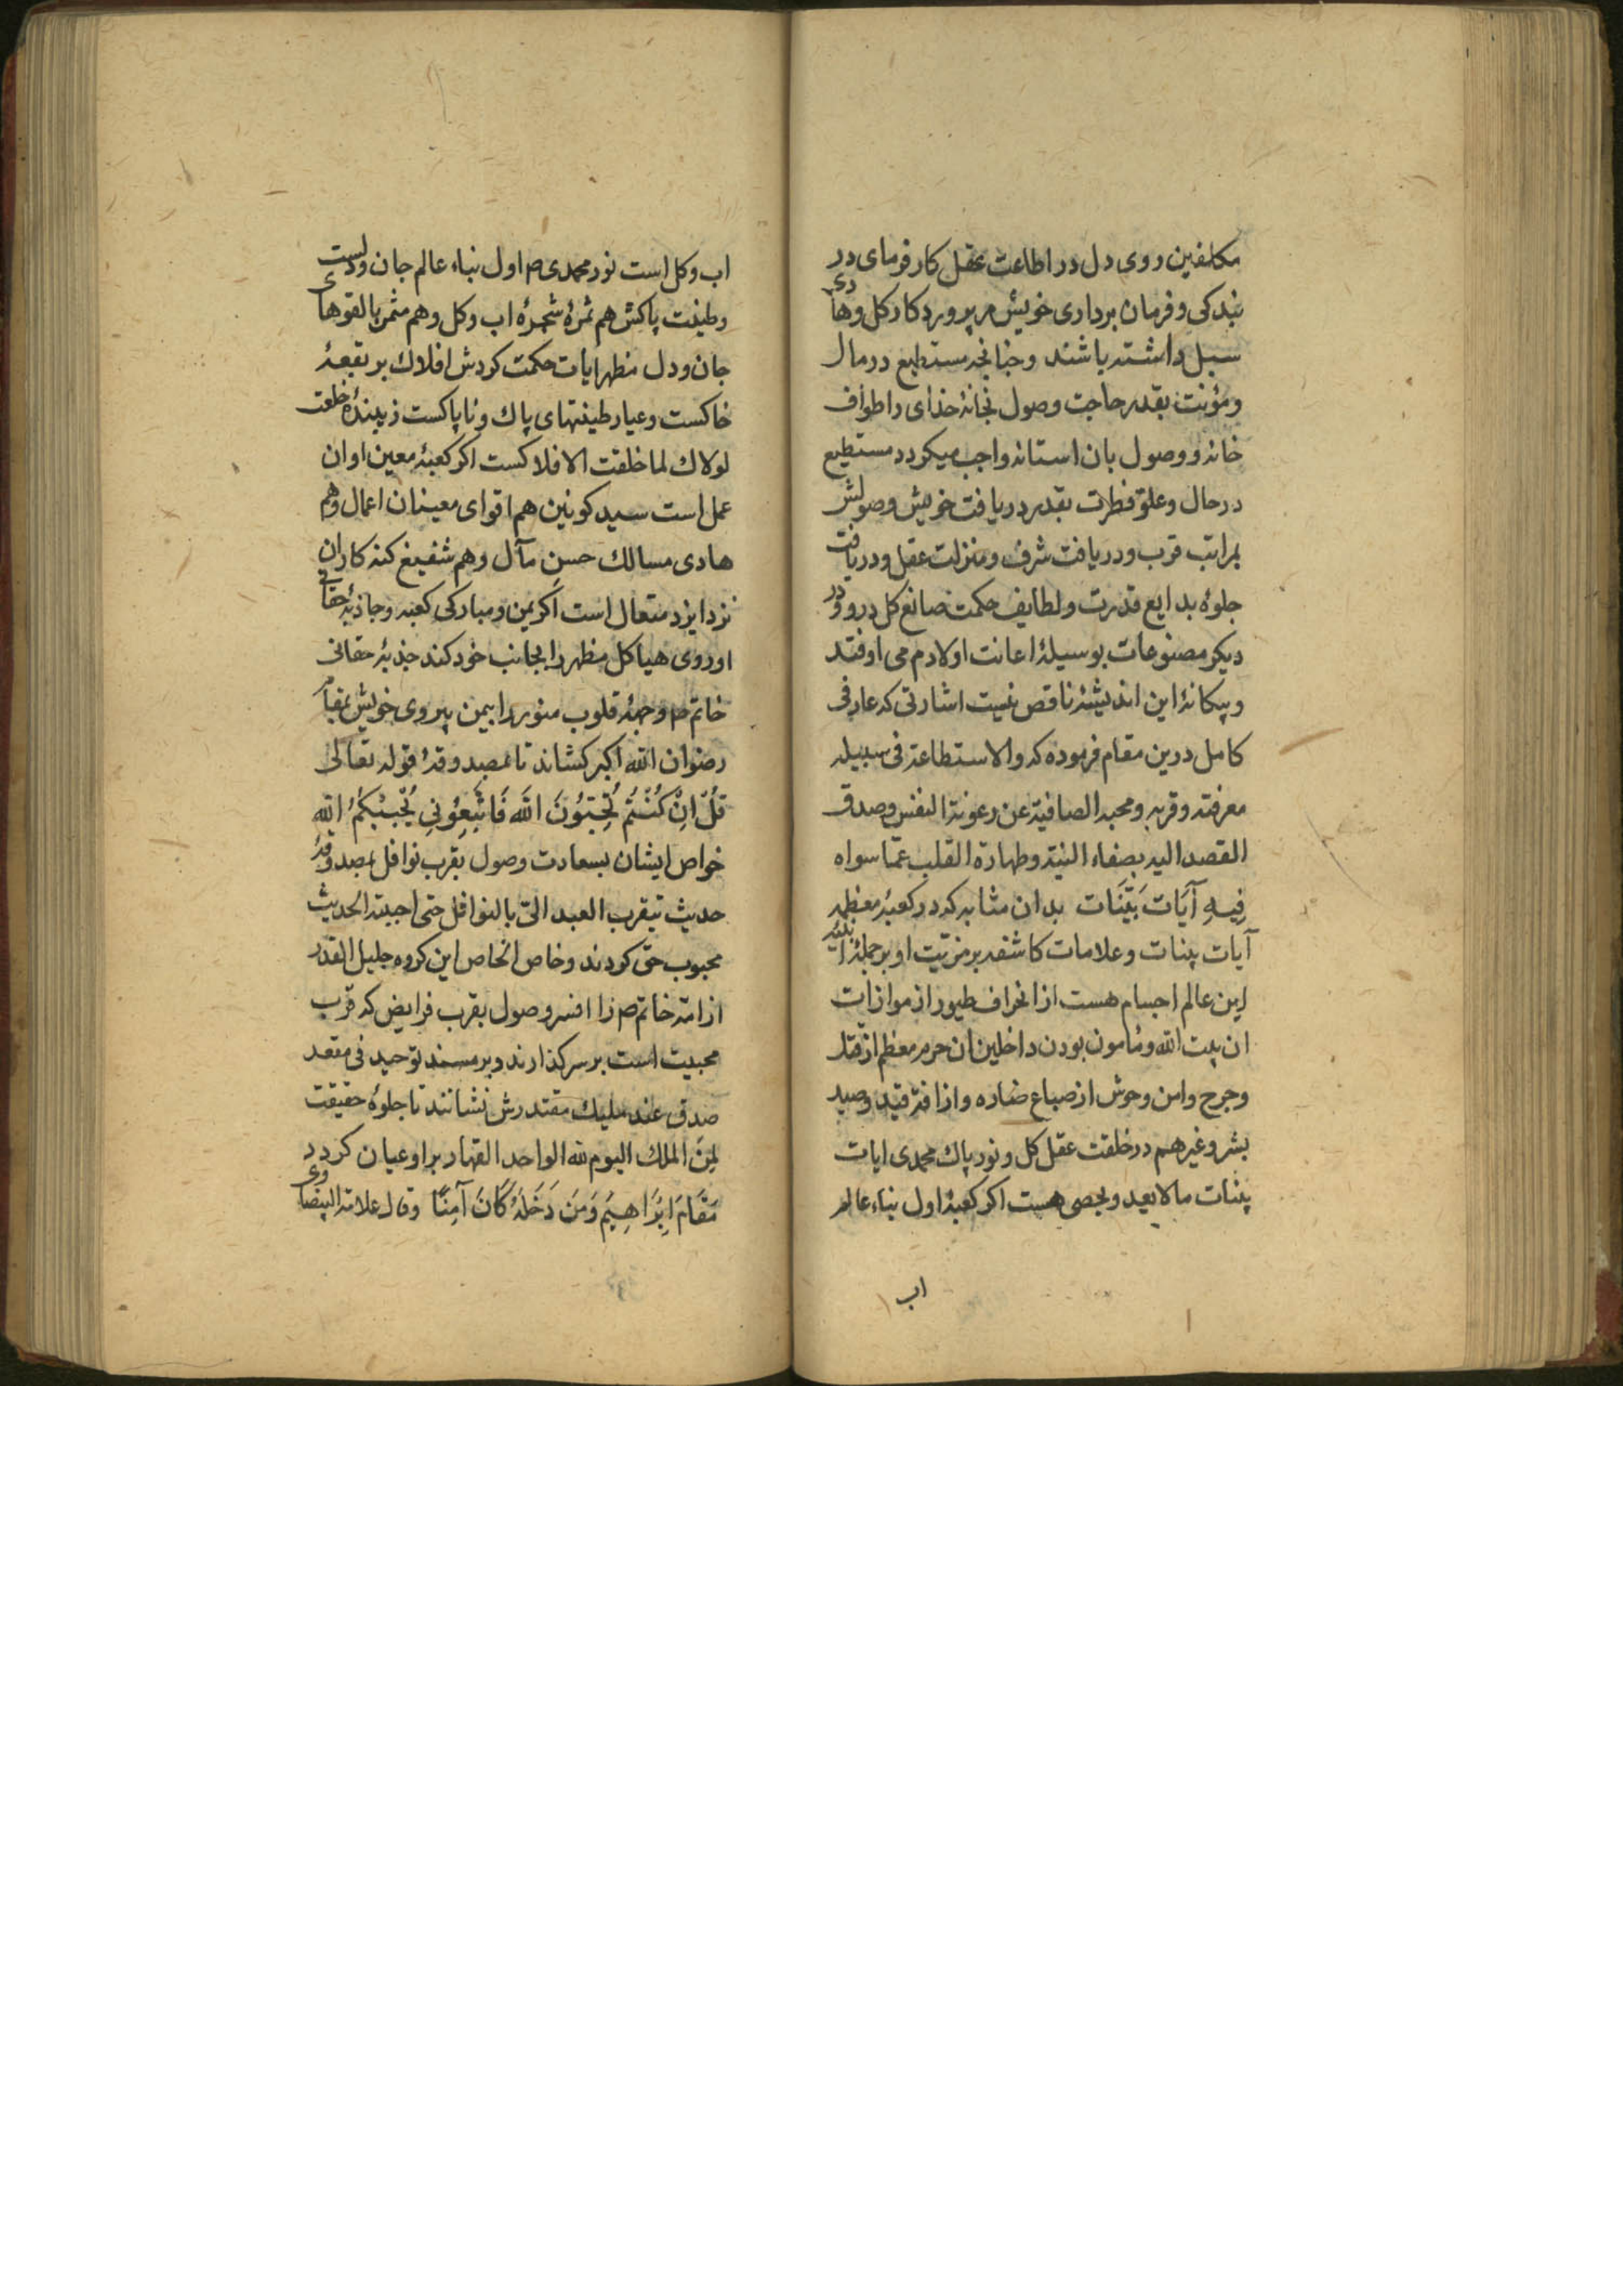 مکلفین روی دل در اطاعت عقل کارفرمای در
بندکی و فرمان برداری خویش مر پروردکار کل و هادی
سبل داشته باشند و چنانچه مستطیع در مال
و مؤنت بقدر حاجت وصول بخانهٔ خدای را طواف
خانه و وصول بان استانه واجب میکردد مستطیع
در حال و علو فطرت بقدر دریافت خویش وصولش
بمراتب قرب و دریافت شرف و منزلت عقل و دریافت
جلوهٔ بدایع قدرت و لطایف حکمت صانع کل درو و در
دیکر مصنوعات بوسیلهٔ اعانت او لازم می اوفتد
و بیکانهٔ این اندیشهٔ ناقص نیست اشارتی که عارفی
کامل درین مقام فرموده که والاستطاعة فی سبیله
معرفته و قربه و محبه الصافیة عن رعونة النفس و صدق
القصد الیه بصفاء النیة و طهارة القلب عمّا سواه
فِیهِ آیَات بَیِّنَات بدان مثابه که در کعبهٔ معظمه
آیات بینات و علامات کاشفه بر مزیّت او بر جملهٔ ابنیه
این عالم اجسام هست از انحراف طیور از موازات
ان بیت الله و مأمون بودن داخلین ان حرم معظم از قتل
و جرح و امن وحوش از صباع ضاره و از افة قید و صید
بشر و غیر هم در خلقت عقل کل و نور پاک محمدی ایات
بینات ما لا یعد و یحصی هست اکر کعبهٔ اول بناء عالم
اب
اب و کل است نور محمدی ص اول بناء عالم جان و دلست
و طینت پاکش هم ثمرهٔ شجرهٔ اب و کل و هم مثمر بالقوهای
جان و دل مظهر ایات حکمت کردش افلاک بر بقعهٔ
خاکست و عیار طینتهای پاک و ناپاکست زیبندهٔ خلعت
لولاک لما خلقت الافلاکست اکر کعبهٔ معین اوان
عمل است سید کونین هم اقوای معینان اعمال و هم
هادی مسالک حسن مآل و هم شفیع کنه کاران
نزد ایزد متعال است اکر یمن و مبارکی کعبه و جاذبهٔ حقانی
او روی هیاکل مظهر را بجانب خود کند جذبهٔ حقانی
خاتم ص وجههٔ قلوب منور را بیمن پیروی خویش بمقام
رضوان الله اکبر کشاند تا بمصدوقهٔ قوله تعالی
قُلْ اِنْ کُنْتُمْ تُحِبُّونَ اللهَ فَاتَّبِعُونِی یُحْبِبْکُمُ الله
خواص ایشان بسعادت وصول بقرب نوافل بمصدوقهٔ
حدیث یتقرب العبد الیّ بالنوافل حتی احببته الحدیث
محبوب حق کردند و خاص الخاص این کروه جلیل القدر
از امة خاتم ص را افسر وصول بقرب فرایض که قرب
محبیت است بر سر کذارند و بر مسند توحید فی مقعد
صدق عند ملیک مقتدرش نشانند تا جلوهٔ حقیقت
لِمَنِ الملک الیوم لله الواحد القهار بر او عیان کردد
مَقَامَ اِبْرَاهِیْمَ وَمَنْ دَخَلَهُ کَانَ آمِنًا و قال علامة البیضاوی